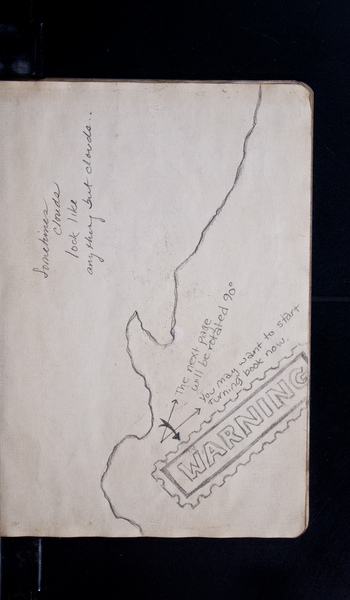 Sometimes
clouds
look like
anything but clouds...
The next page
will be rotated 90°
You may want to start
turning book now.
WARNING